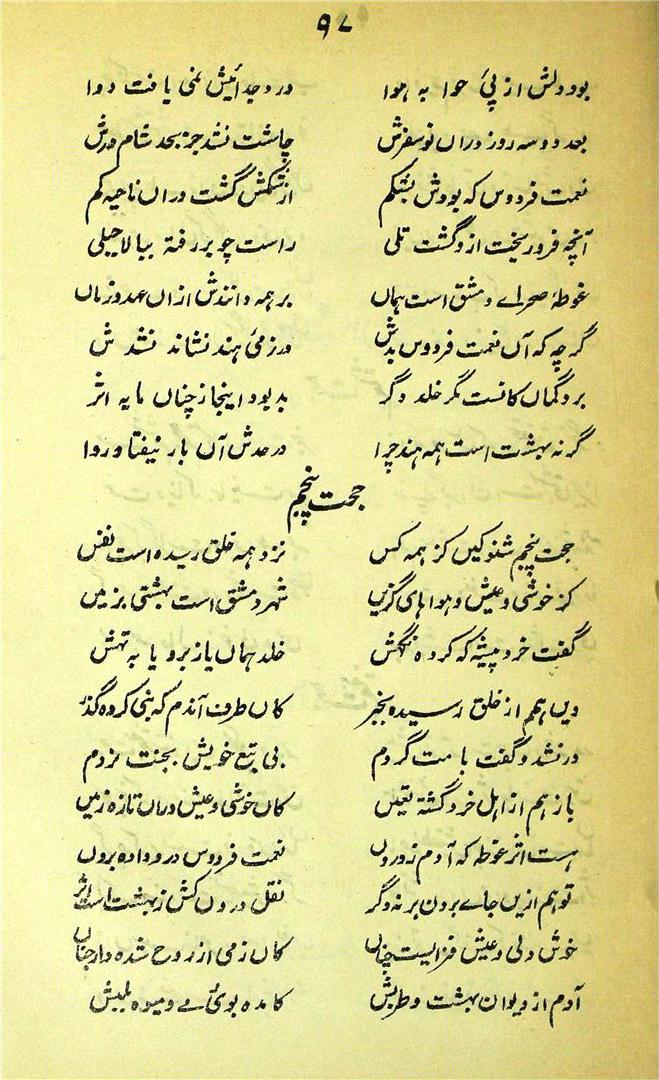 ۹۷
بود دلش از پئ حوا به هوا در وجد انیش نمی یافت دوا
بعد دو سه روز دران نو سفرش چاشت نشد جز بحد شام درش
نعمت فردوس که بودش بشکم از شکمش گشت دران ناحیه کم
آنچه فرو ریخت ازو گشت تلی راست چو بر رفته ببالا جبلی
غوطهٔ صحرای دمشق است همان بر همه دانندش ازان عهد و زمان
گرچه که آں نعمت فردوس بدش در زمئ هند نشاند نشدش
برد گماں کانست مگر خلد دگر بد بود اینجا ز چناں مایه اثر
گر نه بهشت است همه هند چرا در حدش آں بار نیفتاد روا
حجت پنجم
حجت پنجم شنو کیں کز همه کس نزد همه خلق رسیده است نفس
کز خوشی و عیش و هوا های گزیں شهر دمشق است بهشتی بزمیں
گفت خرد پیشه که کرده نگهش خلد هماں یاز برو یا به تهش
ویں هم از خلق رسیده بخبر کاں طرف آندم که نبی کرده گذر
در نشد و گفت بامت گر دم بی تبع خویش بجنت نزدم
باز هم از اهل خرد گشته یقیں کاں خوشی و عیش دراں تازه زمیں
هست اثر غوطه که آدم ز دروں نعمت فردوس درو داده بروں
تو هم ازیں جاے بروں بر نه دگر نقل دروں کش ز بهشت است اثر
خوش دلی و عیش فزائیست چناں کاں زمی از روح شده دار جناں
آدم از دیوان بهشت و طربش کامده بوئ مے و میوه بلبش